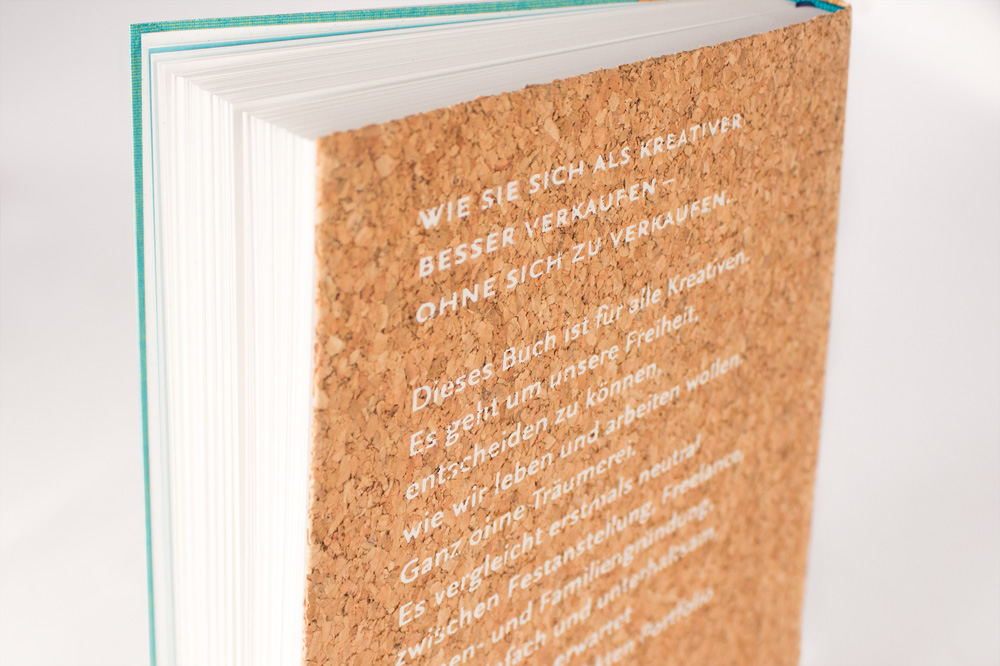 WIE SIE SICH ALS KREATIVER
BESSER VERKAUFEN –
OHNE SICH ZU VERKAUFEN.
Dieses Buch ist für alle Kreativen.
Es geht um unsere Freiheit,
entscheiden zu können,
wie wir leben und arbeiten wollen.
Ganz ohne Träumerei.
Es vergleicht erstmals neutral
zwischen Festanstellung, Freelance,
und Familiengründung,
und unterhaltsam,
erwartet
Portfolio